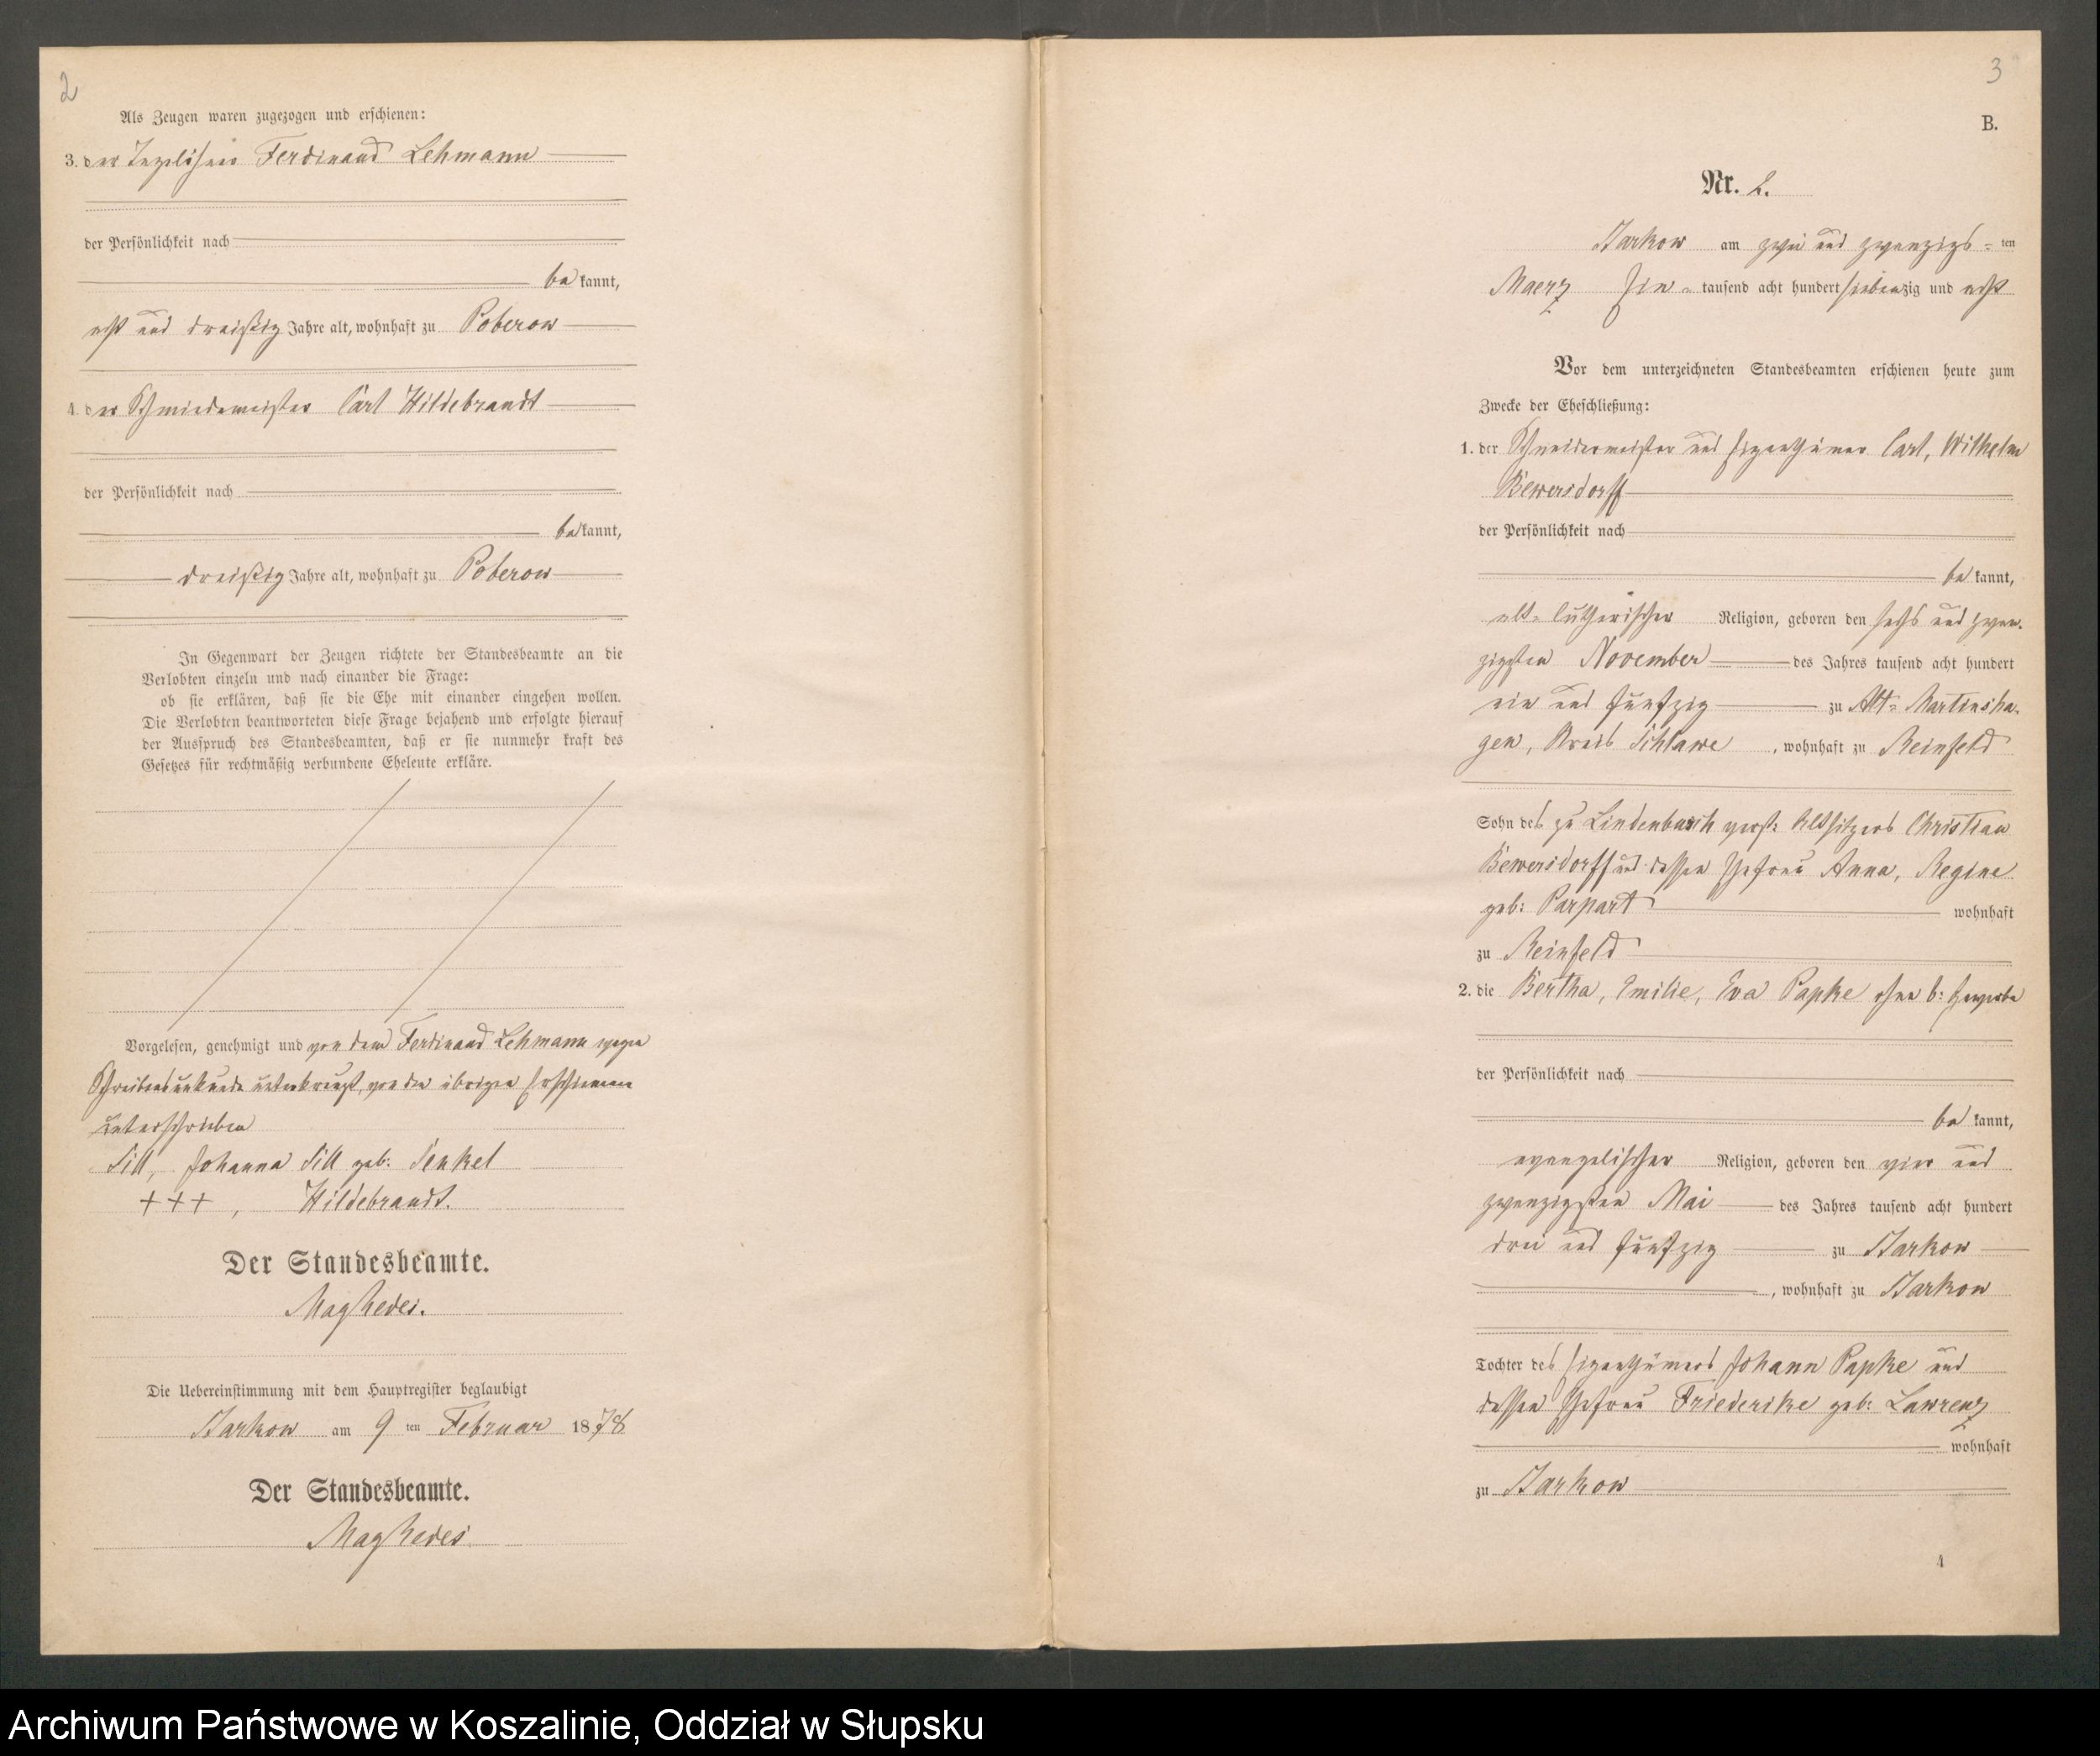 2
Als Zeugen waren zugezogen und erschienen:
3. der Tagelöhner Ferdinand Lehmann
der Persönlichkeit nach
be kannt,
acht und dreißig Jahre alt, wohnhaft zu Poberow
4. der Schmiedemeister Carl Hildebrandt
der Persönlichkeit nach
be kannt,
dreißig Jahre alt, wohnhaft zu Poberow
In Gegenwart der Zeugen richtete der Standesbeamte an die
Verlobten einzeln und nach einander die Frage:
ob sie erklären, daß sie die Ehe mit einander eingehen wollen.
Die Verlobten beantworteten diese Frage bejahend und erfolgte hierauf
der Ausspruch des Standesbeamten, daß er sie nunmehr kraft des
Gesetzes für rechtmäßig verbundene Eheleute erkläre.
Vorgelesen, genehmigt und von dem Ferdinand Lehmann wegen
Schreibensunkunde unterkreuzt, von den übrigen Erschienenen
unterschrieben
Sill, Johanna Sill geb: Senkel
+++, Hildebrandt.
Der Standesbeamte.
Die Uebereinstimmung mit dem Hauptregister beglaubigt
Starkow am 9 ten Februar 1878
Der Standesbeamte.
3
B.
Nr. 2.
Starkow am zwei und zwanzigs- ten
Maerz Ein- tausend acht hundert siebenzig und acht
Vor dem unterzeichneten Standesbeamten erschienen heute zum
Zwecke der Eheschließung:
1. der Schneidermeister und Eigenthümer Carl, Wilhelm
Bewersdorff
der Persönlichkeit nach
be kannt,
alt-lutherischer Religion, geboren den sechs und zwan-
zigsten November des Jahres tausend acht hundert
ein und fünfzig zu Alt-Martinsha-
gen, Kreis Schlawe, wohnhaft zu Reinfeld
Sohn des zu Lindenbusch verst: Altsitzers Christian
Bewersdorff und dessen Ehefrau Anna, Regine
geb: Parpart wohnhaft
zu Reinfeld
2. die Bertha, Emilie, Eva Papke ohne b: Gewerbe
der Persönlichkeit nach
be kannt,
evangelischer Religion, geboren den vier und
zwanzigsten Mai des Jahres tausend acht hundert
drei und fünfzig zu Starkow
, wohnhaft zu Starkow
Tochter des Eigenthümers Johann Papke und
dessen Ehefrau Friederike geb: Lawrenz
wohnhaft
zu Starkow
Archiwum Państwowe w Koszalinie, Oddział w Słupsku